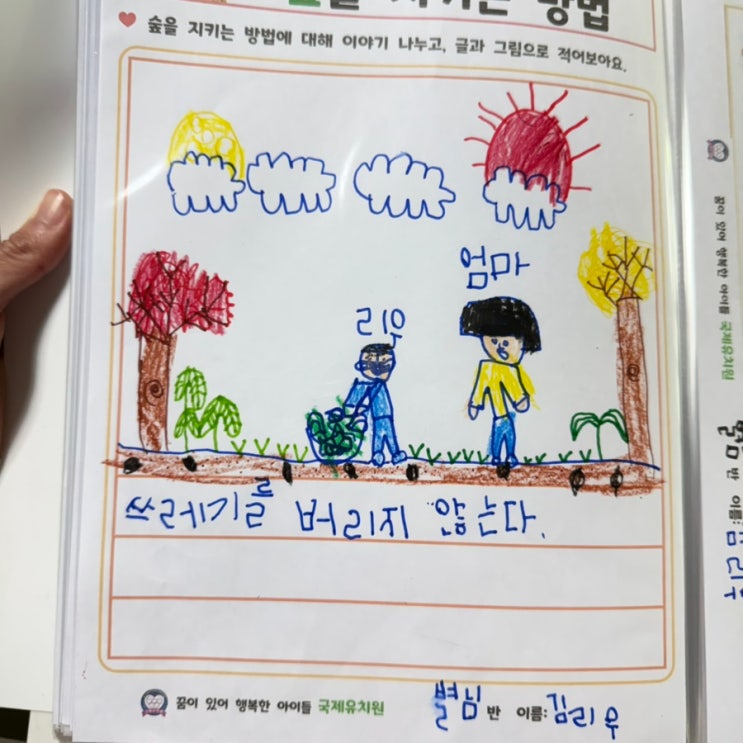 방법
숲을 지키는 방법에 대해 이야기 나누고, 글과 그림으로 적어보아요.
엄마
리우
쓰레기를 버리지 않는다.
꿈이 있어 행복한 아이들 국제유치원
별님 반 이름: 김리우
꿈이 있어 행복한 아이들 국제유치원
별님 반 이름: 김리우